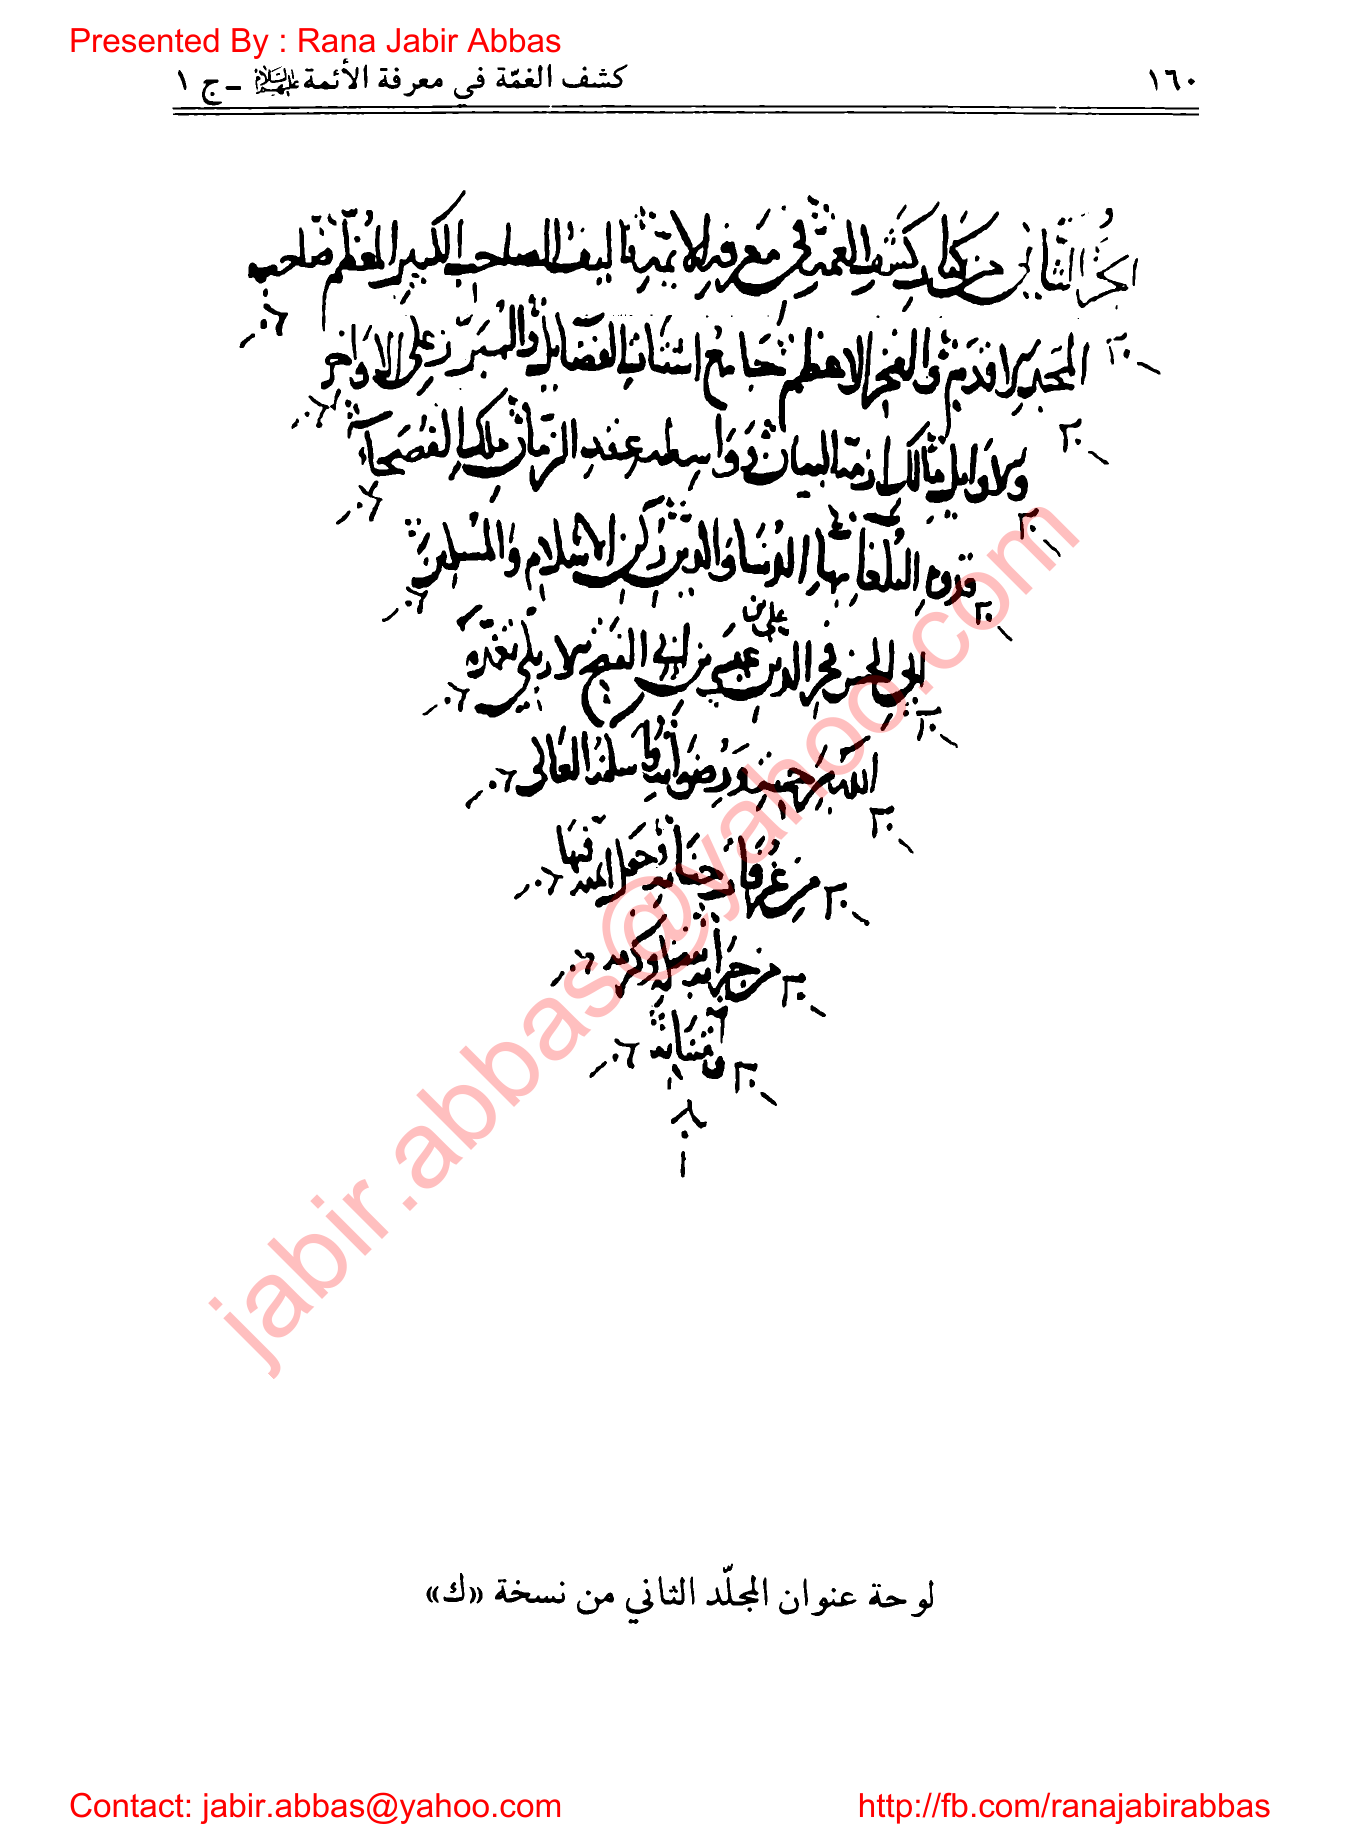 Presented By : Rana Jabir Abbas
١٦٠ كشف الغمّة في معرفة الأئمة عليهم السلام ـ ج ١
الجزء الثاني من كتاب كشف الغمة في معرفة الائمة تاليف الصاحب الكبير المعظم صاحب
المجد الاقدم والفخر الاعظم جامع اشتات الفضايل والمبرز على الاواخر
والاوايل مالك ازمة البيان وواسطة عقد الزمان ملك الفصحاء
قدوة البلغاء بهاء الدنيا والدين ركن الاسلام والمسلمين
ابي الحسن علي بن فخر الدين عيسى بن ابي الفتح الاربلي تغمده
الله برحمته ورضوانه واسكنه العالي
من غرفات جنانه وخوله فيها
من جزيل
وامتنانه
jabir.abbas@yahoo.com
لوحة عنوان المجلّد الثاني من نسخة «ك»
Contact: jabir.abbas@yahoo.com http://fb.com/ranajabirabbas